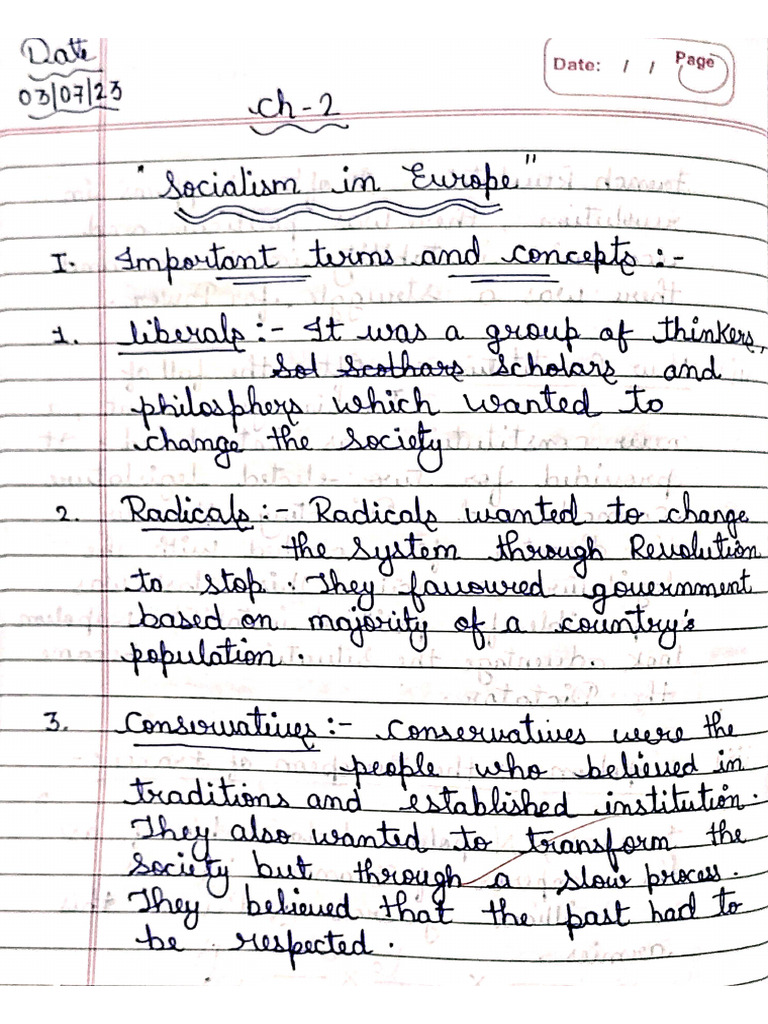 Date
03/07/23
Date: / / Page
Ch-2
"Socialism in Europe"
I. Important terms and concepts :-
1. Liberals :- It was a group of thinkers,
Sol Scothars scholars and
philosphers which wanted to
change the society
2. Radicals :- Radicals wanted to change
the system through Revolution
to stop. They favoured government
based on majority of a country's
population.
3. Conservatives :- Conservatives were the
people who believed in
traditions and established institution.
They also wanted to transform the
society but through a slow process.
They believed that the past had to
be respected.